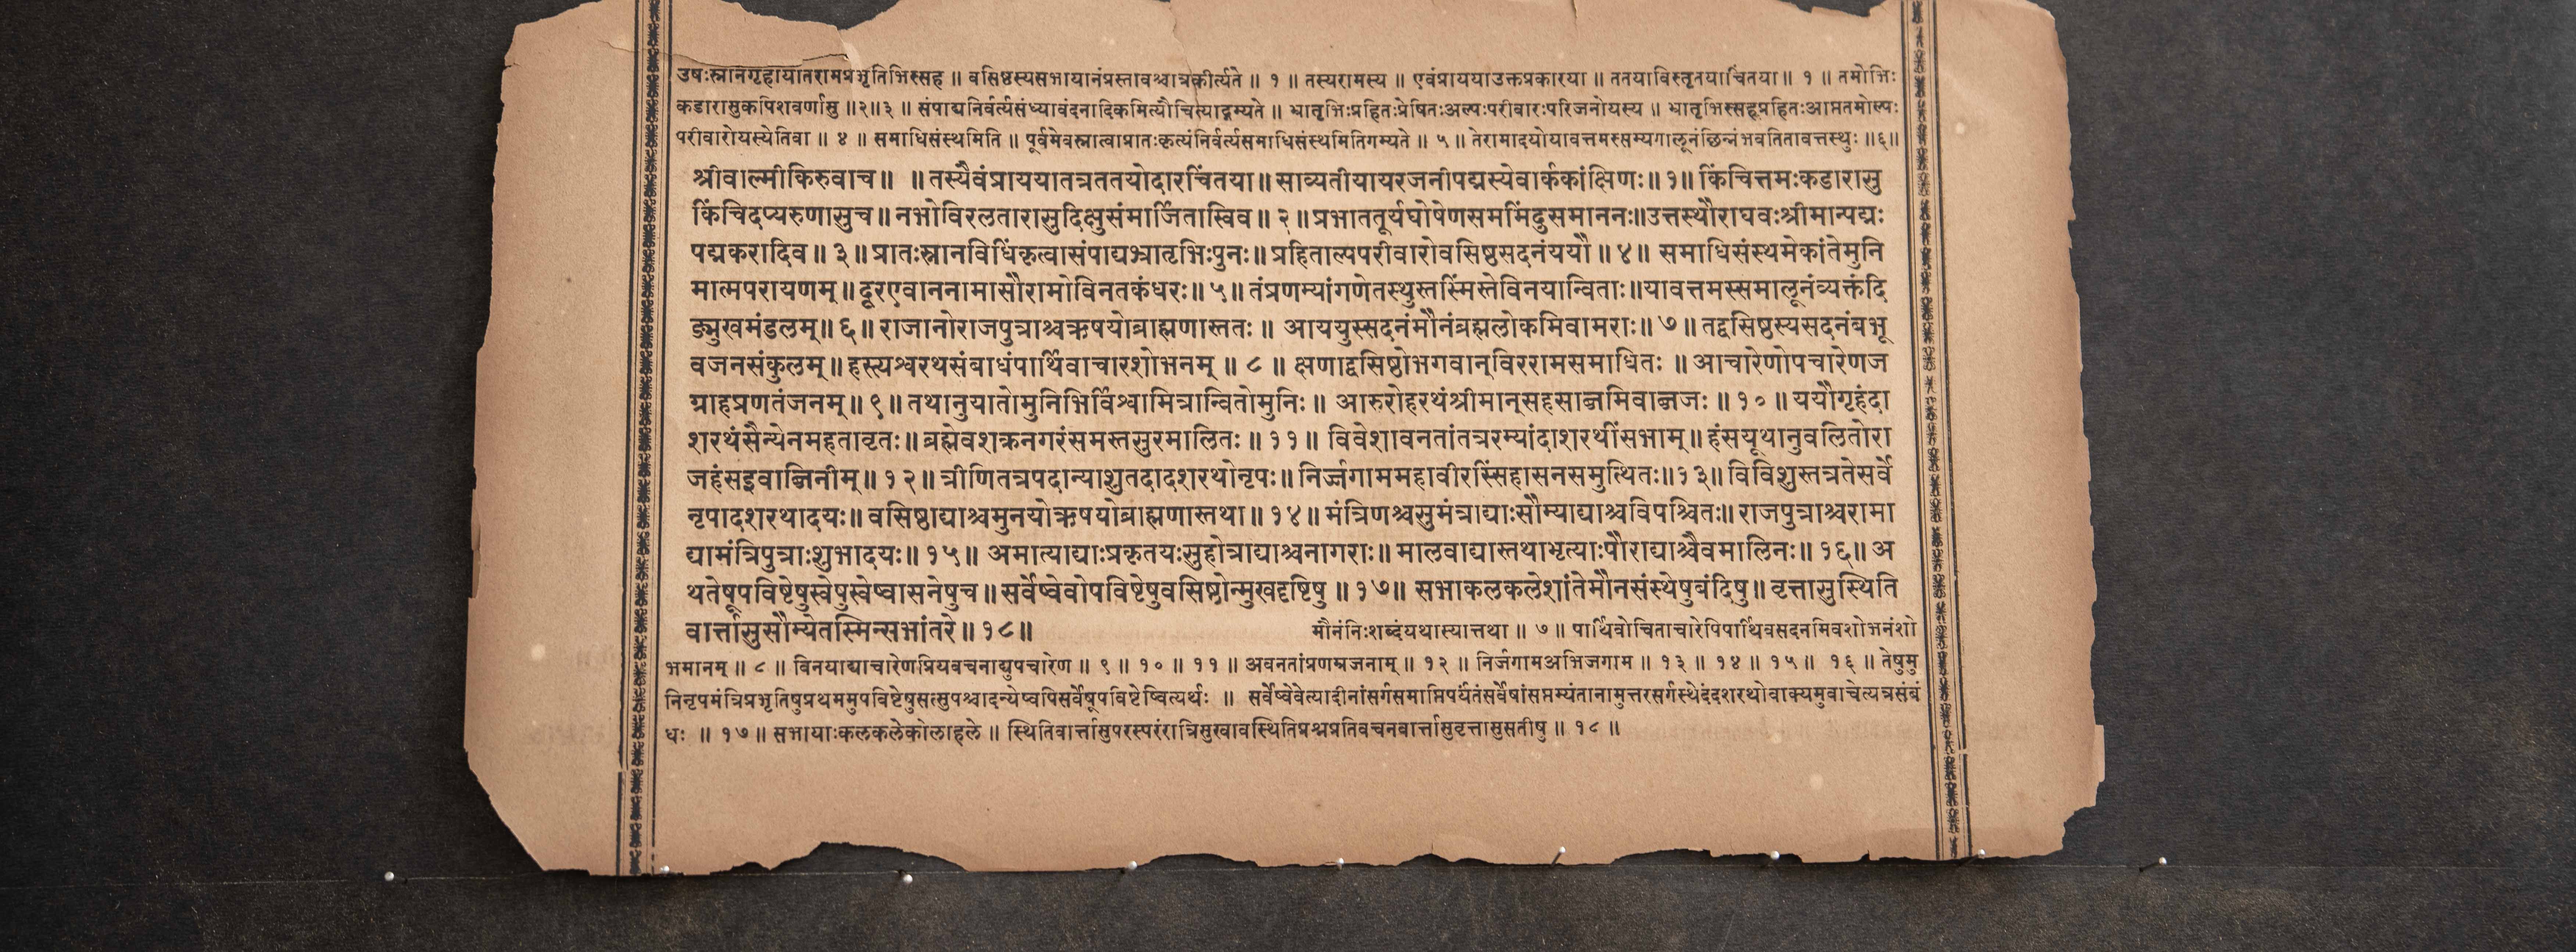 उषःस्नानगृहायातरामप्रभृतिभिस्सह ॥ वसिष्ठस्यसभायानंप्रस्तावश्चात्रकीर्त्यते ॥ १ ॥ तस्यरामस्य ॥ एवंप्राययाउक्तप्रकारया ॥ ततयाविस्तृतयाचिंतया ॥ १ ॥ तमोभिः
कडारासुकपिशवर्णासु ॥२॥३ ॥ संपाद्यनिर्वर्त्यसंध्यावंदनादिकमित्यौचित्याद्गम्यते ॥ भ्रातृभिःप्रहितःप्रेषितःअल्पःपरीवारःपरिजनोयस्य ॥ भ्रातृभिस्सहप्रहितःआप्ततमोल्पः
परीवारोयस्येतिवा ॥ ४ ॥ समाधिसंस्थमिति ॥ पूर्वमेवस्नात्वाप्रातःकृत्यंनिर्वर्त्यसमाधिसंस्थमितिगम्यते ॥ ५ ॥ तेरामादयोयावत्तमस्सम्यगालूनंछिन्नंभवतितावत्तस्थुः ॥६॥
श्रीवाल्मीकिरुवाच॥ ॥ तस्यैवंप्राययातत्रततयोदारचिंतया॥ साव्यतीयायरजनीपद्मस्येवार्ककांक्षिणः॥ १॥ किंचित्तमःकडारासु
किंचिदप्यरुणासुच॥ नभोविरलतारासुदिक्षुसंमार्जितास्विव॥ २॥ प्रभाततूर्यघोषेणसममिंदुसमाननः॥उत्तस्थौराघवःश्रीमान्पद्मः
पद्मकरादिव॥ ३॥ प्रातःस्नानविधिंकृत्वासंपाद्यभ्रातृभिःपुनः॥ प्रहिताल्पपरीवारोवसिष्ठसदनंययौ॥ ४॥ समाधिसंस्थमेकांतेमुनि
मात्मपरायणम्॥ दूरएवाननामासौरामोविनतकंधरः॥ ५॥ तंप्रणम्यांगणेतस्थुस्तस्मिंस्तेविनयान्विताः॥यावत्तमस्समालूनंव्यक्तंदि
ङ्मुखमंडलम्॥ ६॥ राजानोराजपुत्राश्चऋषयोब्राह्मणास्ततः ॥ आययुस्सदनंमौनंब्रह्मलोकमिवामराः॥ ७॥ तद्वसिष्ठस्यसदनंबभू
वजनसंकुलम्॥ हस्त्यश्वरथसंबाधंपार्थिवाचारशोभनम् ॥ ८ ॥ क्षणाद्वसिष्ठोभगवान्विररामसमाधितः ॥ आचारेणोपचारेणज
ग्राहप्रणतंजनम्॥ ९॥ तथानुयातोमुनिभिर्विश्वामित्रान्वितोमुनिः॥ आरुरोहरथंश्रीमान्सहसाब्जमिवाब्जजः॥ १०॥ ययौगृहंदा
शरथंसैन्येनमहतावृतः॥ ब्रह्मेवशक्रनगरंसमस्तसुरमालितः॥ ११॥ विवेशावनतांतत्ररम्यांदाशरथींसभाम्॥ हंसयूथानुवलितोरा
जहंसइवाब्जिनीम्॥ १२॥ त्रीणितत्रपदान्याशुतदादशरथोनृपः॥ निर्जगाममहावीरस्सिंहासनसमुत्थितः॥१३॥ विविशुस्तत्रतेसर्वे
नृपादशरथादयः॥ वसिष्ठाद्याश्चमुनयोऋषयोब्राह्मणास्तथा॥ १४॥ मंत्रिणश्चसुमंत्राद्याःसौम्याद्याश्चविपश्चितः॥ राजपुत्राश्चरामा
द्यामंत्रिपुत्राःशुभादयः॥ १५॥ अमात्याद्याःप्रकृतयःसुहोत्राद्याश्चनागराः॥ मालवाद्यास्तथाभृत्याःपौराद्याश्चैवमालिनः॥ १६॥ अ
थतेषूपविष्टेषुस्वेषुस्वेष्वासनेषुच॥ सर्वेष्वेवोपविष्टेषुवसिष्ठोन्मुखदृष्टिषु ॥ १७॥ सभाकलकलेशांतेमौनसंस्थेषुवंदिषु॥ वृत्तासुस्थिति
वार्त्तासुसौम्येतस्मिन्सभांतरे॥ १८॥ मौनंनिःशब्दंयथास्यात्तथा ॥ ७ ॥ पार्थिवोचिताचारेपिपार्थिवसदनमिवशोभनंशो
भमानम् ॥ ८ ॥ विनयाद्याचारेणप्रियवचनाद्युपचारेण ॥ ९ ॥ १० ॥ ११ ॥ अवनतांप्रणम्रजनाम् ॥ १२ ॥ निर्जगामअभिजगाम ॥ १३ ॥ १४ ॥ १५ ॥ १६ ॥ तेषुमु
निनृपमंत्रिप्रभृतिषुप्रथममुपविष्टेषुसत्सुपश्चादन्येष्वपिसर्वेषूपविष्टेष्वित्यर्थः ॥ सर्वेष्वेवेत्यादीनांसर्गसमाप्तिपर्यंतंसर्वेषांसप्तम्यंतानामुत्तरसर्गस्थेदंदशरथोवाक्यमुवाचेत्यत्रसंबं
धः ॥ १७ ॥ सभायाःकलकलेकोलाहले ॥ स्थितिवार्त्तासुपरस्परंरात्रिसुखावस्थितिप्रश्नप्रतिवचनवार्त्तासुवृत्तासुसतीषु ॥ १८ ॥